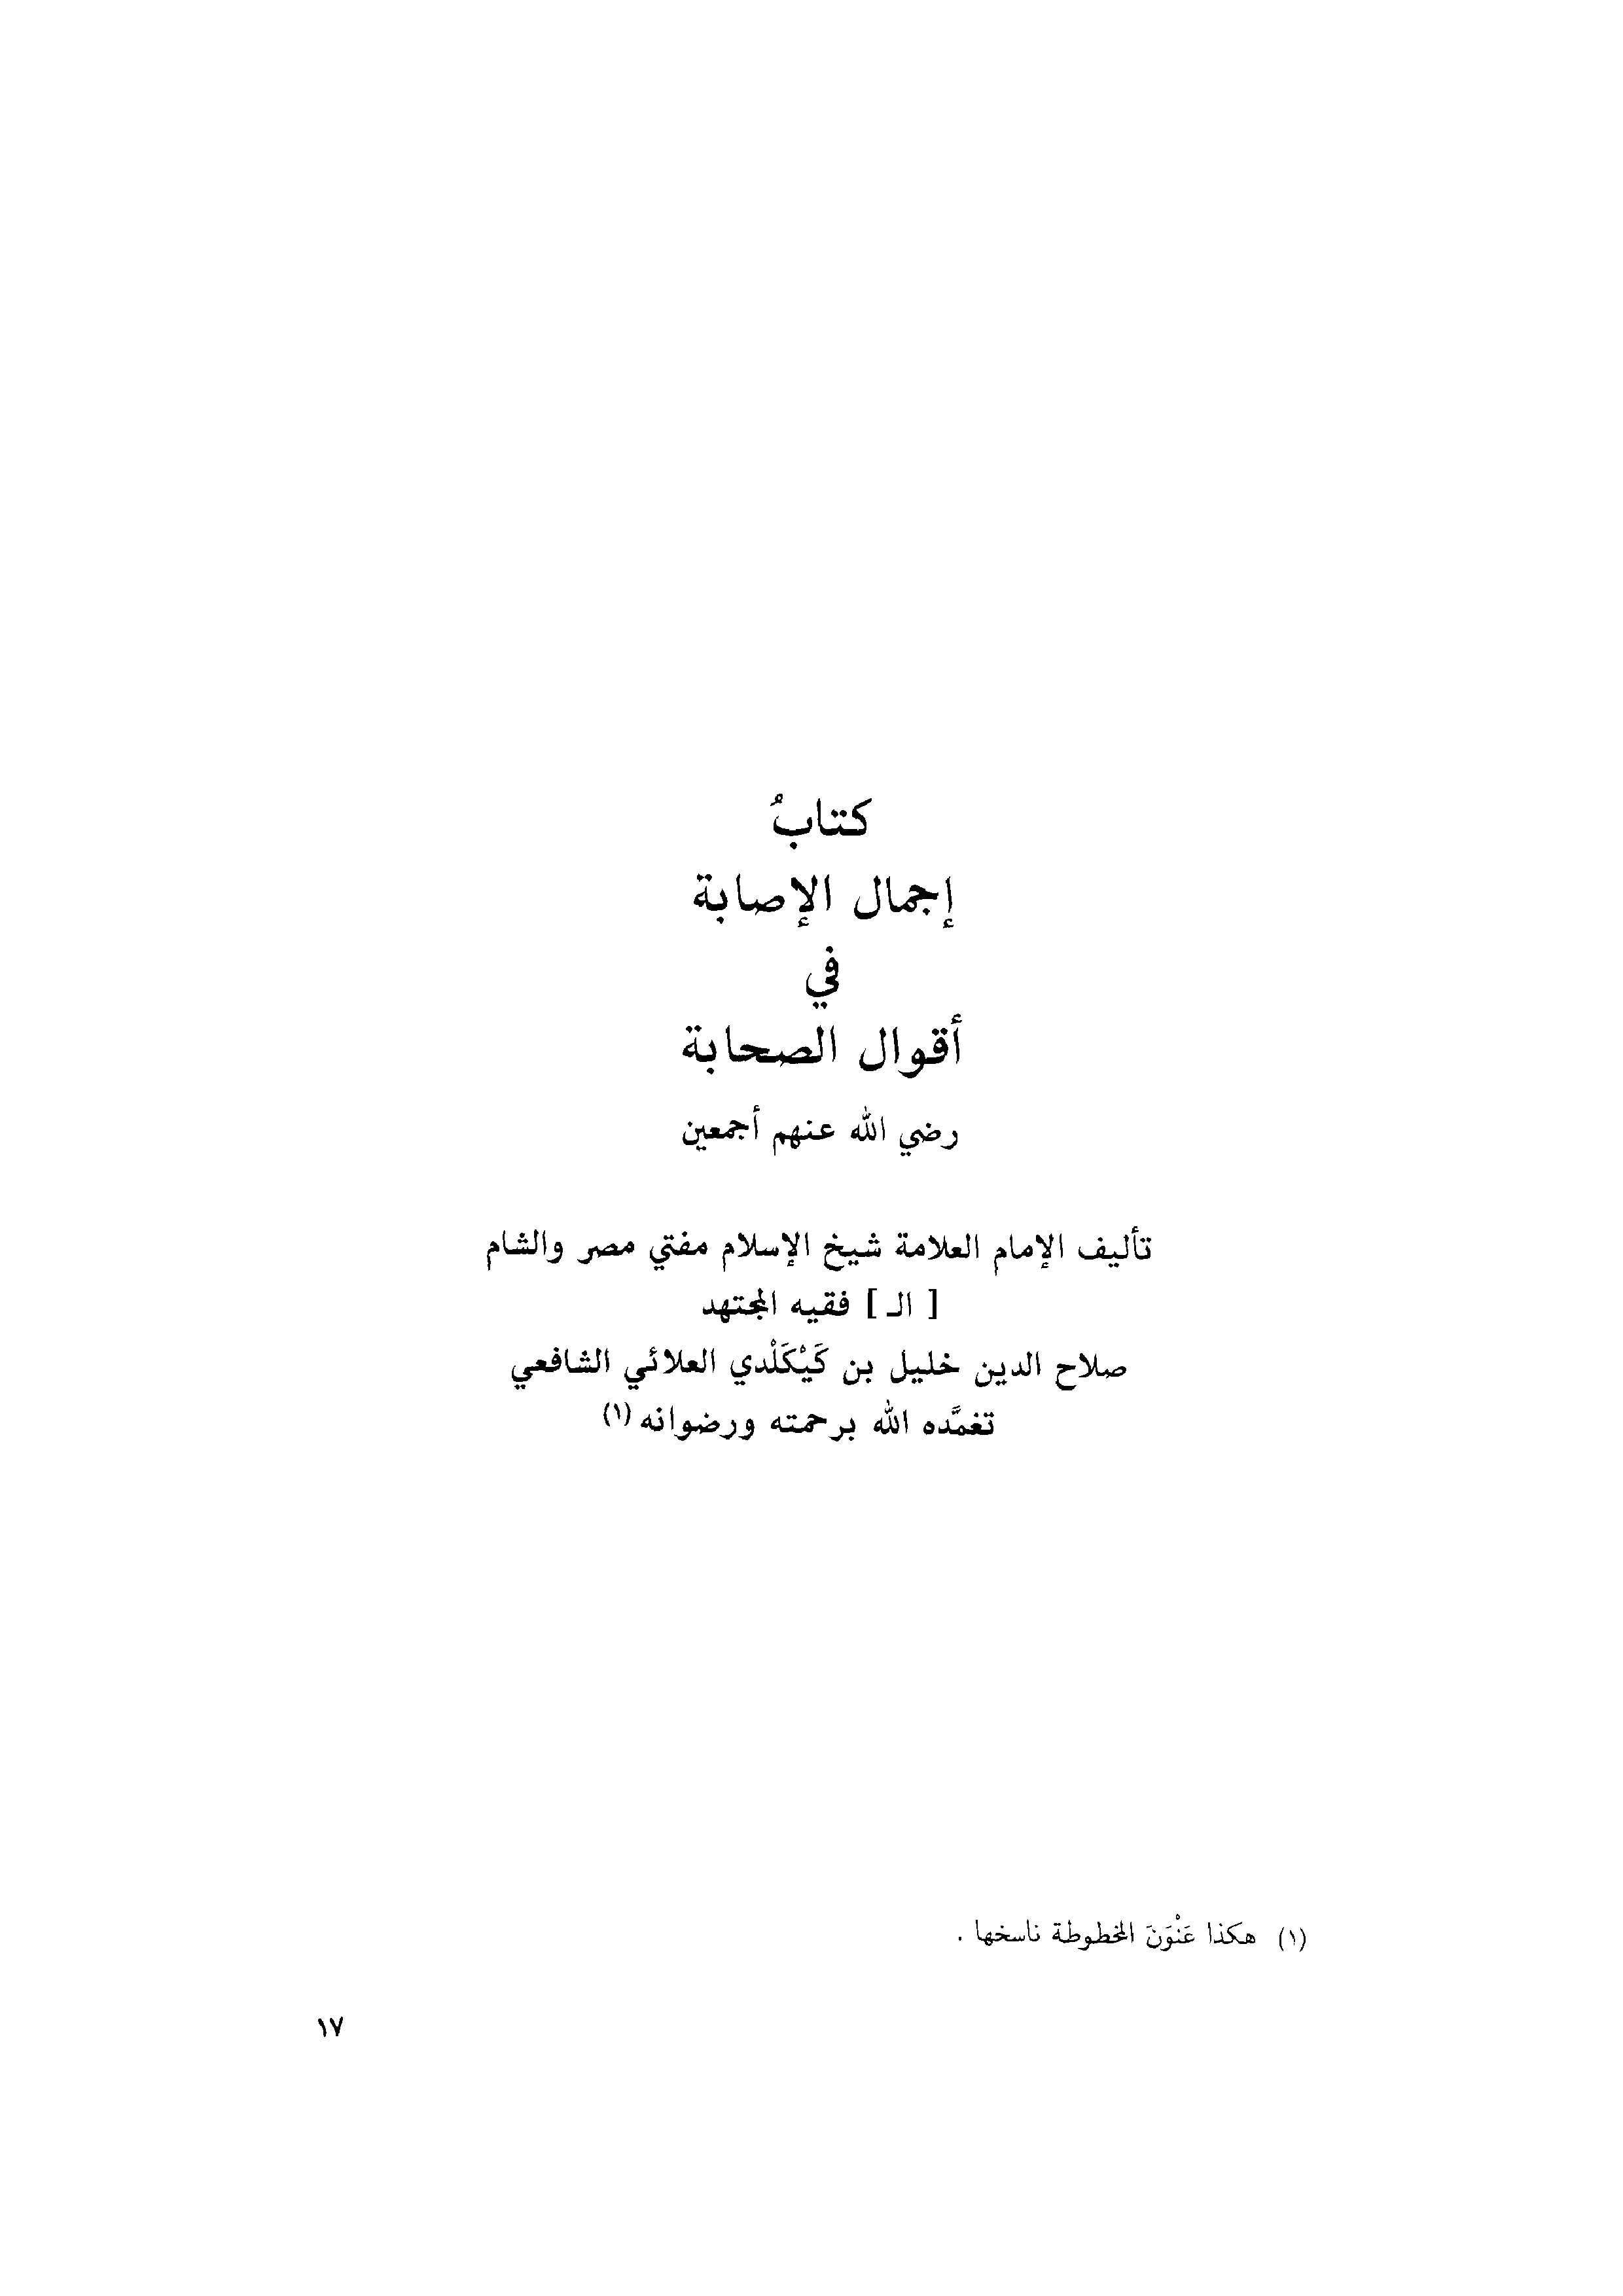 كتابُ
إجمال الإصابة
في
أقوال الصحابة
رضي الله عنهم أجمعين
تأليف الإمام العلامة شيخ الإسلام مفتي مصر والشام
[ الـ ] فقيه المجتهد
صلاح الدين خليل بن كَيْكَلْدي العلائي الشافعي
تغمَّده الله برحمته ورضوانه (١)
(١) هكذا عَنْوَنَ المخطوطة ناسخها .
١٧